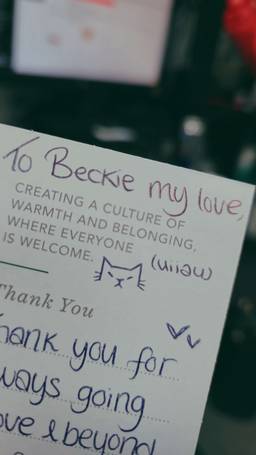 To Beckie my love,
CREATING A CULTURE OF
WARMTH AND BELONGING,
WHERE EVERYONE
IS WELCOME.
(uiiaw)
Thank You
hank you for
ways going
ove & beyond